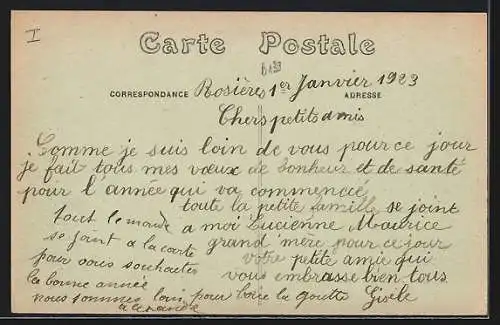 I
Carte Postale
B 133
CORRESPONDANCE
ADRESSE
Rosières 1er Janvier 1923
Chers petits amis
Comme je suis loin de vous pour ce jour
je fait tous mes vœux de bonheur et de santé
pour l'année qui va commencée
toute la petite famille se joint
a moi Lucienne Maurice
grand mère pour ce jour
votre petite amie qui
vous embrasse bien tous
Gisèle
tout le monde
se joint a la carte
pour vous souhaiter
la bonne année
nous sommes loin pour boire la goutte
a la